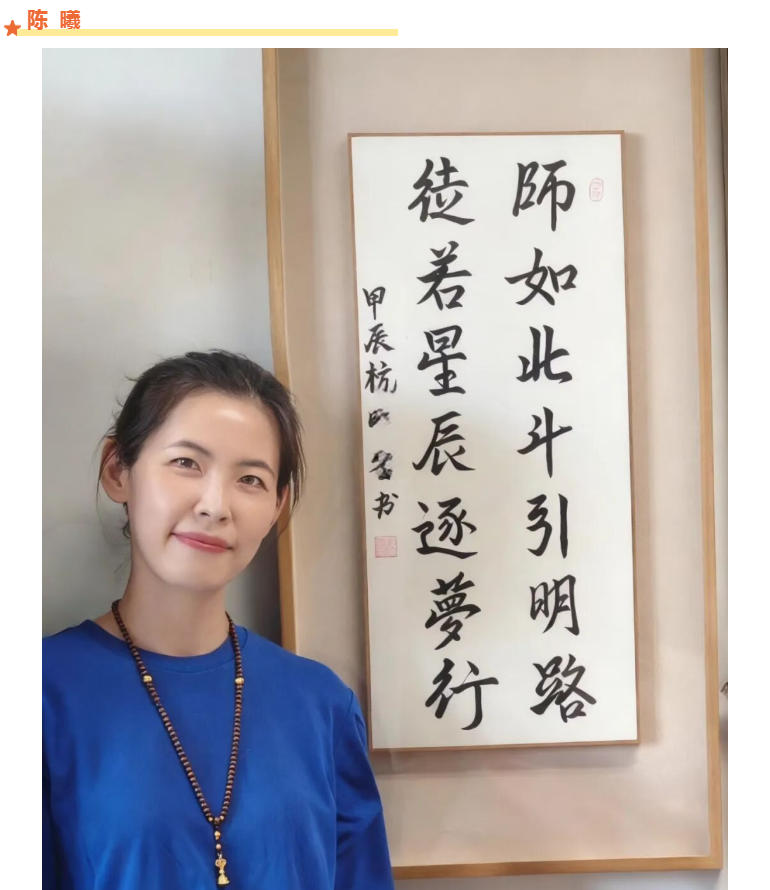 陈 曦
師如北斗引明路
徒若星辰逐夢行
甲辰杭
书